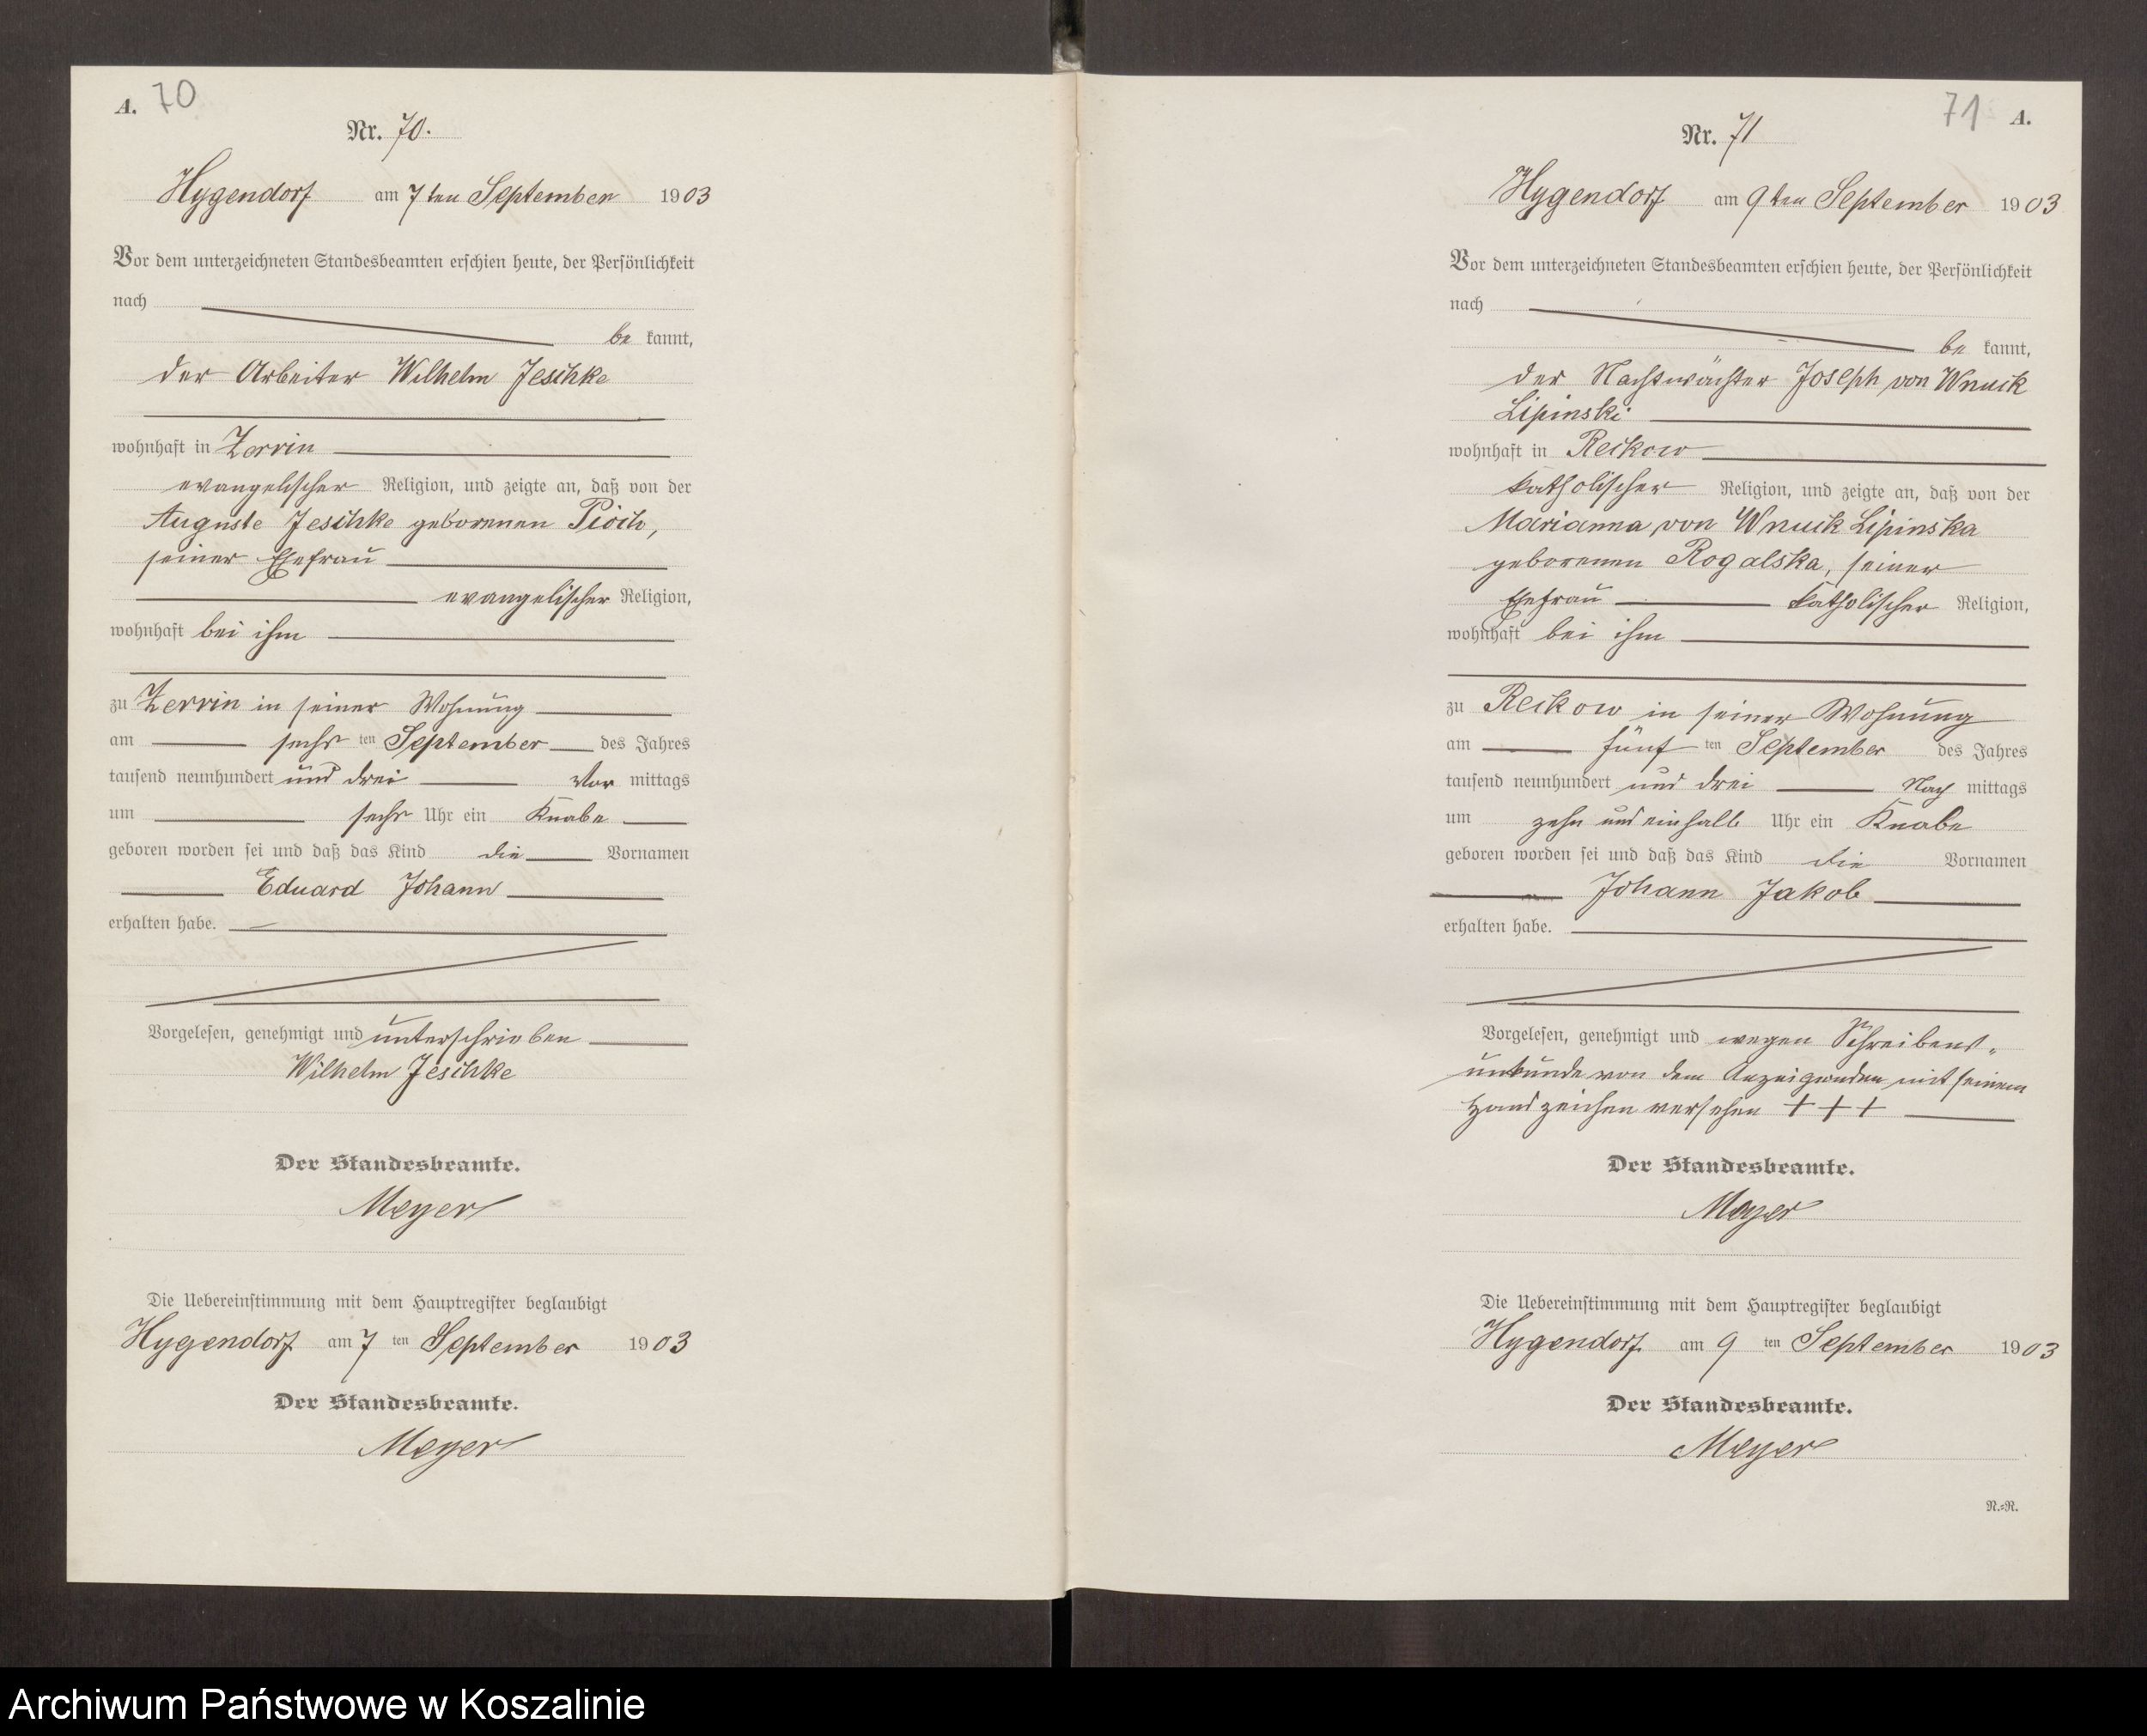 A. 70
Nr. 70.
Hygendorf am 7ten September 1903
Vor dem unterzeichneten Standesbeamten erschien heute, der Persönlichkeit
nach
be kannt,
der Arbeiter Wilhelm Jeschke
wohnhaft in Zerrin
evangelischer Religion, und zeigte an, daß von der
Auguste Jeschke geborenen Pioch,
seiner Ehefrau
evangelischer Religion,
wohnhaft bei ihm
zu Zerrin in seiner Wohnung
am sechs ten September des Jahres
tausend neunhundert und drei Vor mittags
um sechs Uhr ein Knabe
geboren worden sei und daß das Kind die Vornamen
Eduard Johann
erhalten habe.
Vorgelesen, genehmigt und unterschrieben
Wilhelm Jeschke
Der Standesbeamte.
Meyer
Die Uebereinstimmung mit dem Hauptregister beglaubigt
Hygendorf am 7 ten September 1903
Der Standesbeamte.
Meyer
71 A.
Nr. 71
Hygendorf am 9ten September 1903
Vor dem unterzeichneten Standesbeamten erschien heute, der Persönlichkeit
nach
be kannt,
der Nachtwächter Joseph von Wnuck
Lipinski
wohnhaft in Reckow
katholischer Religion, und zeigte an, daß von der
Marianna von Wnuck Lipinska
geborenen Rogalska, seiner
Ehefrau katholischer Religion,
wohnhaft bei ihm
zu Reckow in seiner Wohnung
am fünf ten September des Jahres
tausend neunhundert und drei Nach mittags
um zehn und einhalb Uhr ein Knabe
geboren worden sei und daß das Kind die Vornamen
Johann Jakob
erhalten habe.
Vorgelesen, genehmigt und wegen Schreibens-
unkunde von dem Anzeigenden mit seinem
Handzeichen versehen + + +
Der Standesbeamte.
Meyer
Die Uebereinstimmung mit dem Hauptregister beglaubigt
Hygendorf am 9 ten September 1903
Der Standesbeamte.
Meyer
N.=R.
Archiwum Państwowe w Koszalinie